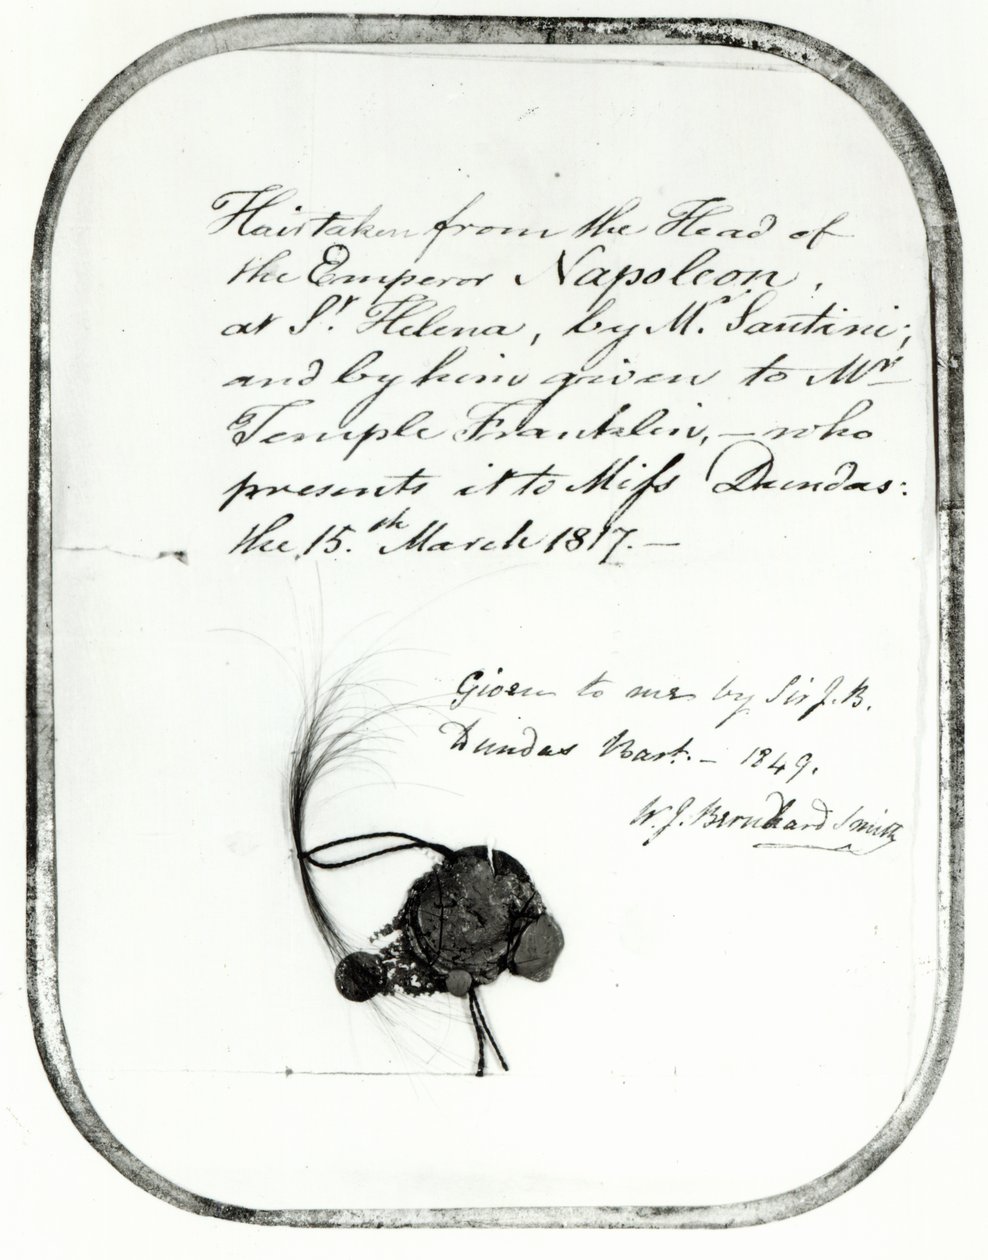 Hair taken from the Head of
the Emperor Napoleon,
at St. Helena, by Mr. Santini;
and by him given to Mr
Temple Franklin, — who
presents it to Miſs Dundas:
the 15.th March 1817. —
Given to me by Sir J. B.
Dundas Bart. — 1849.
W. J. Bernhard Smith